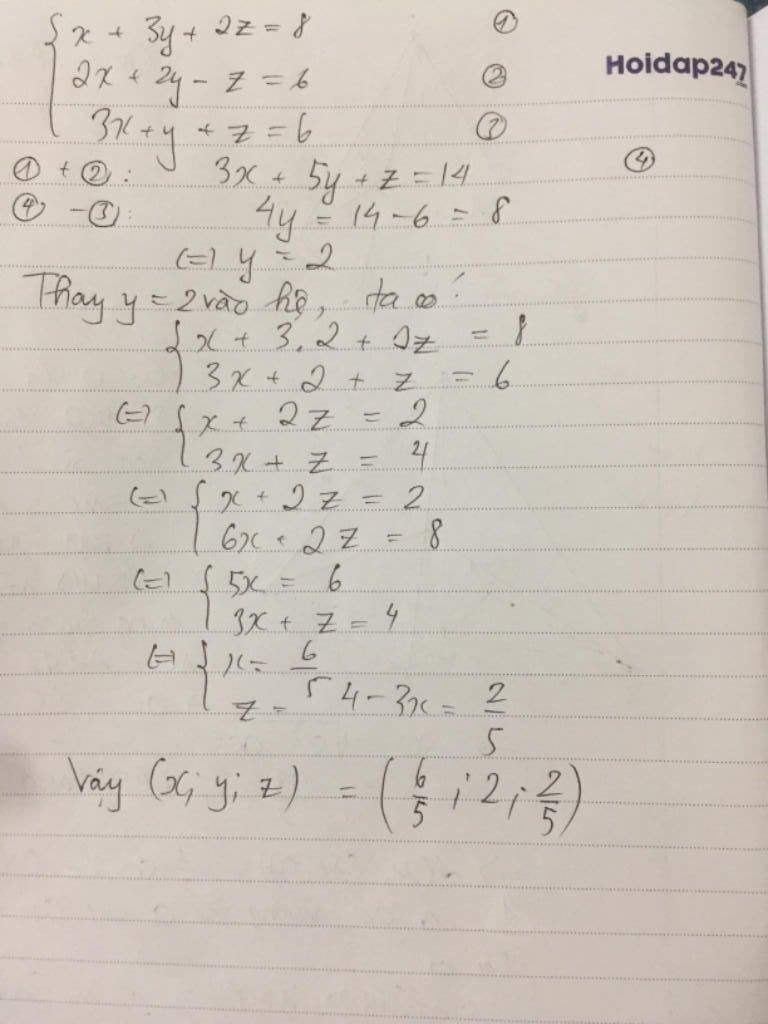 x + 3y + 2z = 8 ①
Hoidap247
2x + 2y - z = 6 ②
3x + y + z = 6 ③
① + ②: 3x + 5y + z = 14 ④
④ - ③: 4y = 14 - 6 = 8
(=) y = 2
Thay y = 2 vào hệ, ta có:
x + 3.2 + 2z = 8
3x + 2 + z = 6
(=) { x + 2z = 2
3x + z = 4
(=) { x + 2z = 2
6x + 2z = 8
(=) { 5x = 6
3x + z = 4
(=) { x = 6/5
z = 4 - 3x = 2/5
Vậy (x; y; z) = (6/5; 2; 2/5)